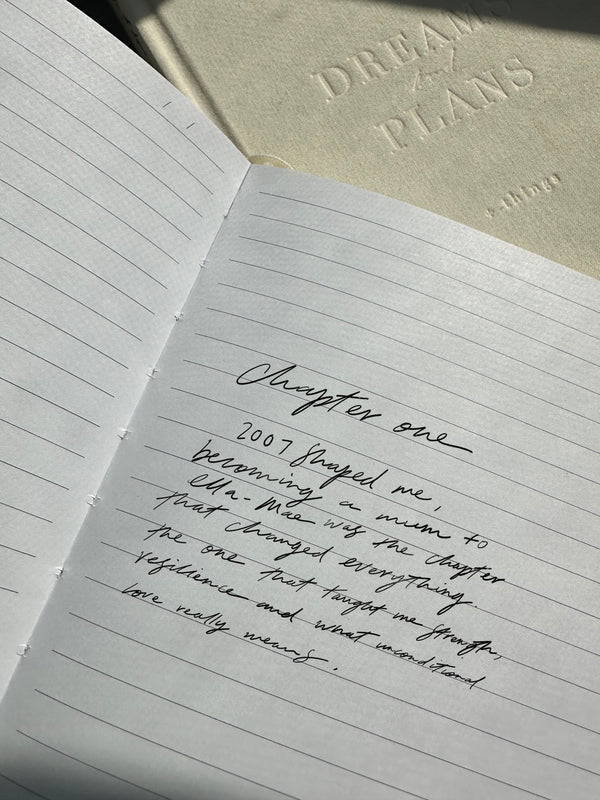 DREAMS
and
PLANS
+ things
chapter one
2007 shaped me,
becoming a mum to
ella-mae was the chapter
that changed everything.
the one that taught me strength,
resilience and what unconditional
love really means.